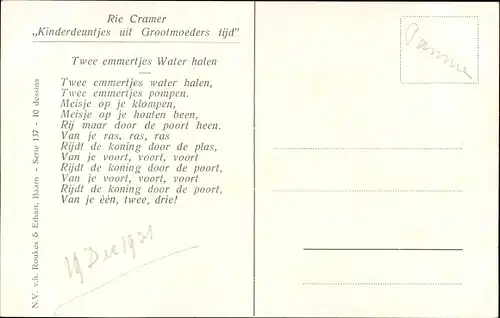 Rie Cramer
„Kinderdeuntjes uit Grootmoeders tijd"
Twee emmertjes Water halen
Twee emmertjes water halen,
Twee emmertjes pompen.
Meisje op je klompen,
Meisje op je houten been,
Rij maar door de poort heen.
Van je ras, ras, ras
Rijdt de koning door de plas,
Van je voort, voort, voort
Rijdt de koning door de poort,
Van je voort, voort, voort
Rijdt de koning door de poort,
Van je één, twee, drie!
19 Dec 1931
N.V. v.h. Roukes & Erhart, Baarn - Serie 137 - 10 dessins